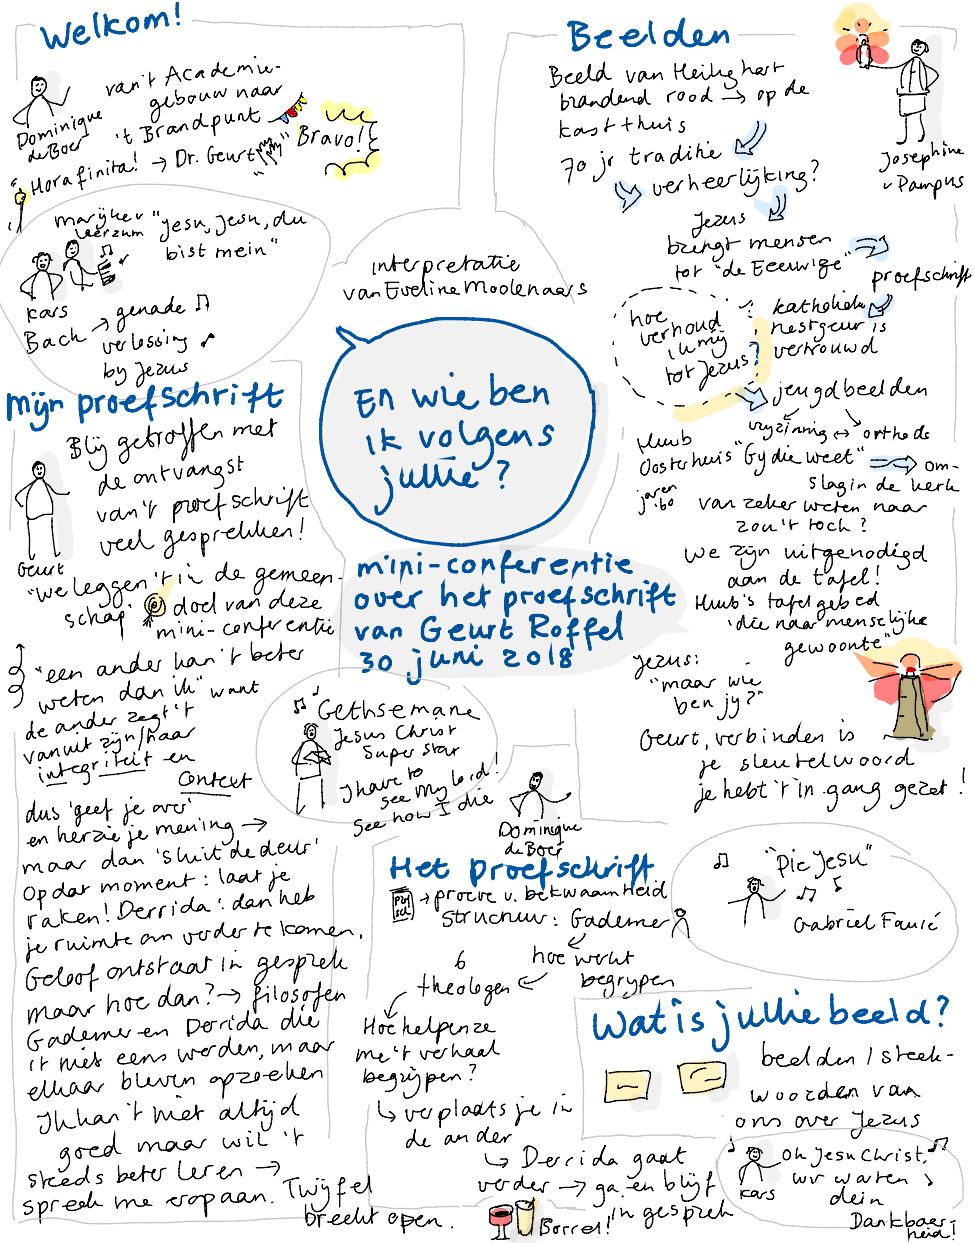 Welkom!
Dominique
de Boer
van 't Academie-
gebouw naar
't Brandpunt
Hora finita! → Dr. Geurt
Bravo!
Marijke v
Leersum
"Jesu, Jesu, du
bist mein"
Kars
Bach → genade
verlossing
by Jezus
Mijn proefschrift
Geurt
Blij getroffen met
de ontvangst
van 't proefschrift
veel gesprekken!
"We leggen 't in de gemeen-
schap" doel van deze
mini-conferentie
"een ander kan 't beter
weten dan ik" want
de ander zegt 't
vanuit zijn/haar
integriteit en
context
dus 'geef je over'
en herzie je mening →
maar dan 'sluit de deur'
op dat moment: laat je
raken! Derrida: dan heb
je ruimte om verder te komen.
Geloof ontstaat in gesprek
maar hoe dan? → filosofen
Gademer en Derrida die
't niet eens werden, maar
elkaar bleven opzoeken
Ik kan 't niet altijd
goed maar wil 't
steeds beter leren →
spreek me erop aan. Twijfel
breekt open.
interpretatie
van Eveline Moolenaars
En wie ben
ik volgens
jullie?
mini-conferentie
over het proefschrift
van Geurt Roffel
30 juni 2018
Gethsemane
Jesus Christ
Super star
I have to
see my Lord!
See how I die
Domingue
de Boer
Het proefschrift
→ proeve v. bekwaamheid
structuur: Gademer
hoe werkt
begrypen
6
theologen
Hoe helpen ze
me 't verhaal
begrijpen?
↳ verplaats je in
de ander
↳ Derrida gaat
verder → ga en blijf
in gesprek
Borrel!
Beelden
Beeld van Heilig hart
brandend rood → op de
kast thuis
70 jr traditie
verheerlijking?
Jezus
brengt mensen
tot "de Eeuwige"
proefschrift
Josephine
v Pampus
hoe
verhoud
ik mij
tot Jezus?
katholieke
nestgeur is
vertrouwd
jeugdbeelden
vryzinnig ↔ orthodo
Huub
Oosterhuis "Gy die weet"
jaren
'60
om-
slag in de kerk
van zeker weten naar
zou 't toch?
We zijn uitgenodigd
aan de tafel!
Huub's tafelgebed
'die naar menselijke
gewoonte"
Jezus:
"maar wie
ben jy?"
Geurt, verbinden is
je sleutelwoord
je hebt 't in gang gezet!
"Pie Jesu"
Gabriel Fauré
Wat is jullie beeld?
beelden / steek-
woorden van
ons over Jezus
Kars
Oh Jesu Christ,
wir warten
dein
Dankbaar-
heid!